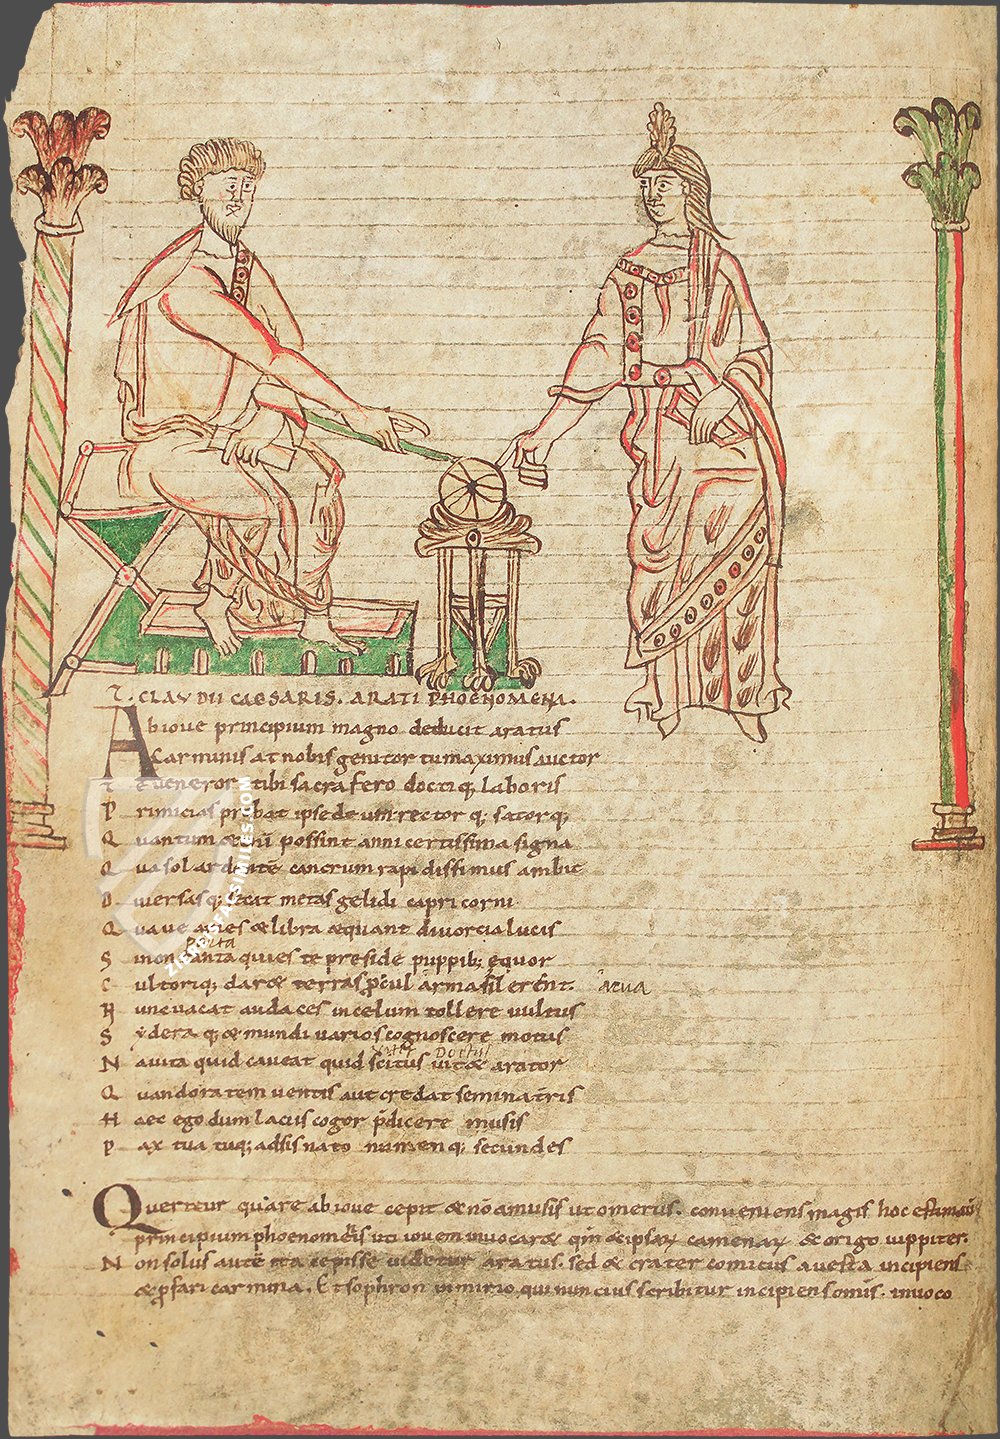 T. CLAVDII CAESARIS. ARATI PHOENOMENA.
Abioue principium magno deducit aratus
Carminis at nobis genitor tu maximus auctor
Te ueneror tibi sacra fero doctiq; laboris
Primicias probat ipse deum rector q; satorq;
Quantum possint anni certissima signa
Qua sol ardentē cancrum rapidissimus ambit
Diuersasq; secat metas gelidi capricorni
Quaue aries & libra æquant diuorcia lucis
porta
Si non tanta quies te preside puppib; equor
Cultoriq; daret terras procul arma silerēnt. arua
Nunc uacat audaces in celum tollere uultus
Sydera q; & mundi uarios cognoscere motus
Doctus
Nauita quid caueat quid scitus uitæ arator
Quando ratem uentis aut credat semina tris
Haec ego dum lacus cogor p̄dicere musis
Pax tua tuq; adsis nato numenq; secundes
Queritur quare ab ioue cepit & nō a musis ut omerus. conueniens magis hoc
principium phoenomenis uti iouem inuocar& camenarum & origo iuppiter.
Non solus autē ita cepisse uidetur aratus. sed & crater comicus a uesta incipiens
& p̄fari carmina. Et sophron in mirio qui nuncius scribitur incipiens omīs. inuoco
ZIEREISFACSIMILES.COM